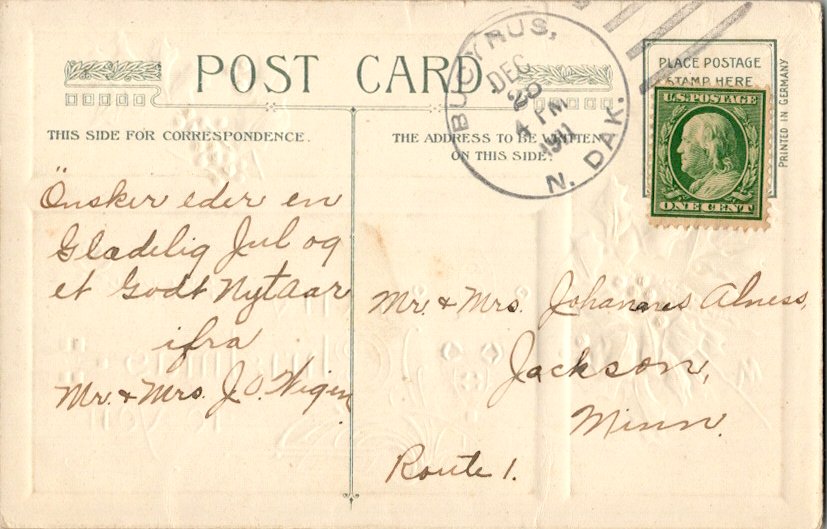 POST CARD
THIS SIDE FOR CORRESPONDENCE.
THE ADDRESS TO BE WRITTEN
ON THIS SIDE.
BUCYRUS,
DEC
20
4 PM
1911
N. DAK.
PLACE POSTAGE
STAMP HERE
U.S. POSTAGE
ONE CENT
PRINTED IN GERMANY
Önsker eder en
Gladelig Jul og
et Godt Nytaar
ifra
Mr. & Mrs. J. O. Wigen
Mr. & Mrs. Johannes Alness,
Jackson,
Minn.
Route 1.